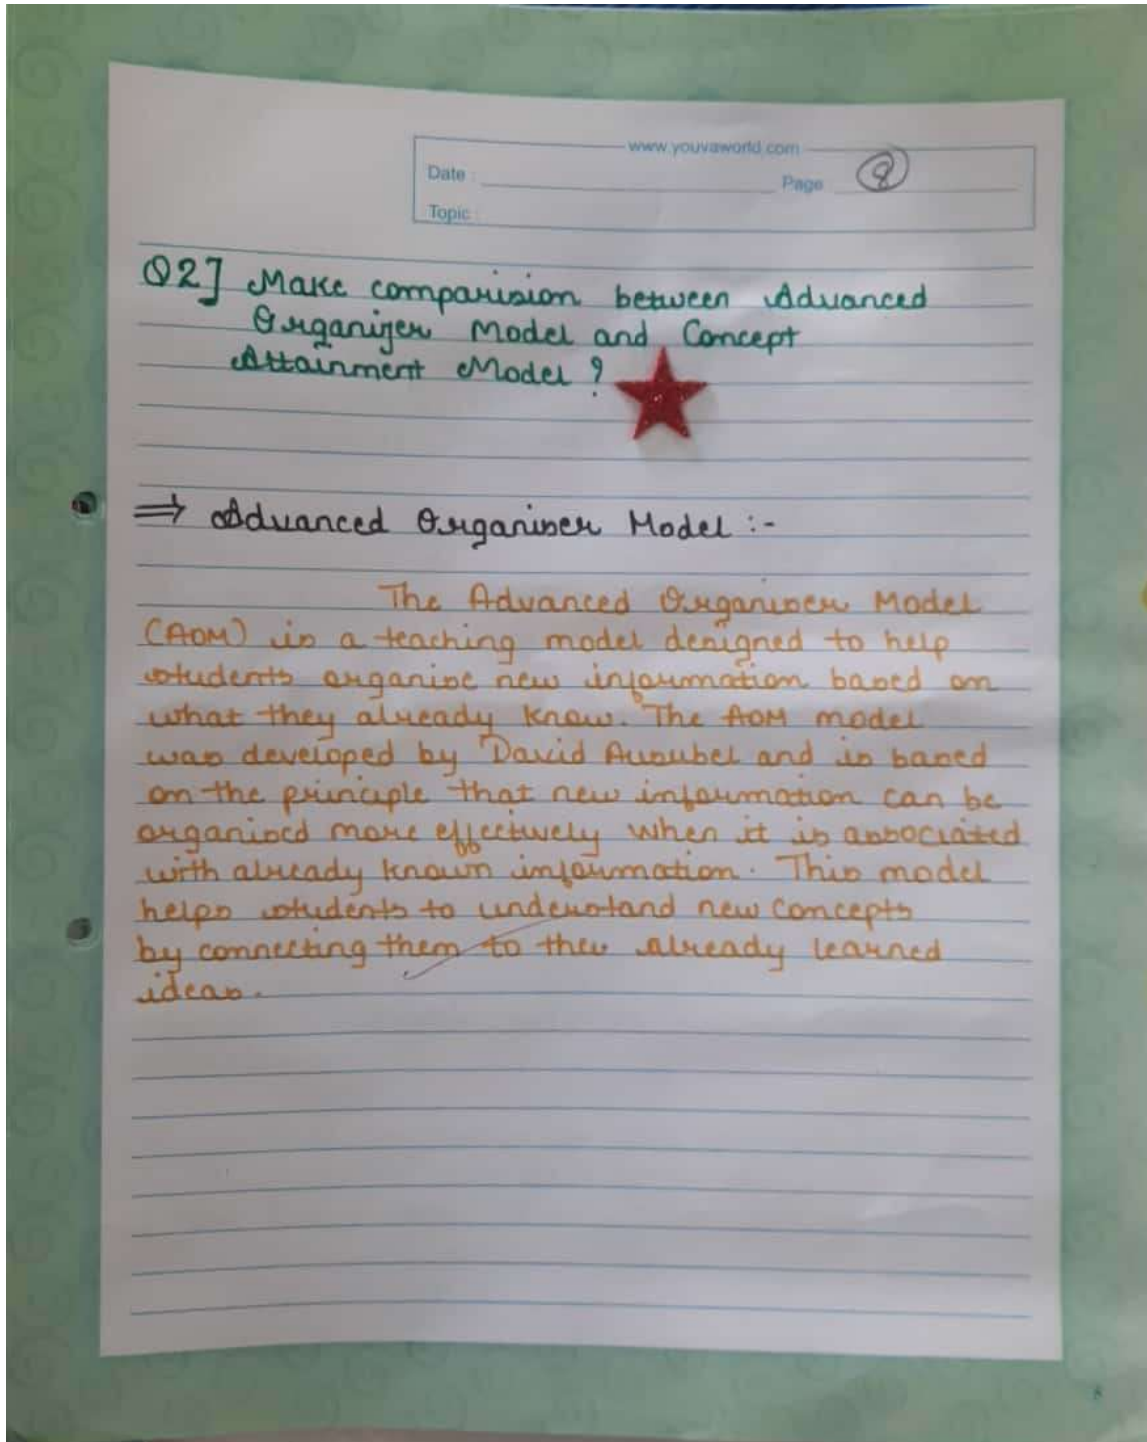 www.youvaworld.com
Date : Page 8
Topic :
Q2] Make comparision between Advanced
Organizer Model and Concept
Attainment Model ?
⇒ Advanced Organiser Model :-
The Advanced Organiser Model
(AOM) is a teaching model designed to help
students organise new information based on
what they already know. The AOM model
was developed by David Ausubel and is based
on the principle that new information can be
organised more effectively when it is associated
with already known information. This model
helps students to understand new concepts
by connecting them to their already learned
ideas.
8